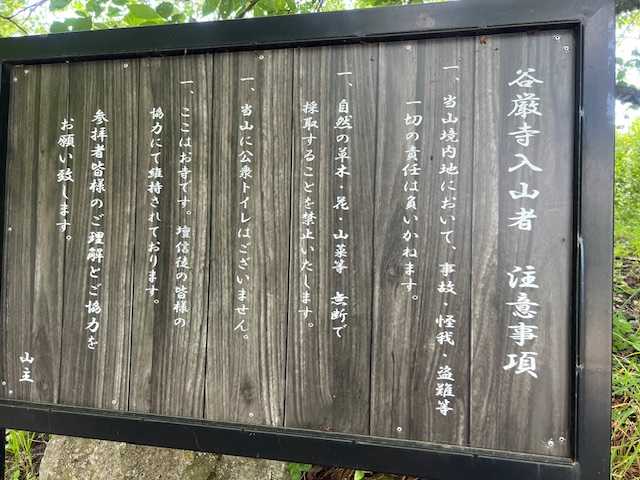 谷厳寺入山者　注意事項
一、当山境内地において、事故・怪我・盗難等
一切の責任は負いかねます。
一、自然の草木・花・山菜等　無断で
採取することを禁止いたします。
一、当山に公衆トイレはございません。
一、ここはお寺です。壇信徒の皆様の
協力にて維持されております。
参拝者皆様のご理解とご協力を
お願い致します。
山主